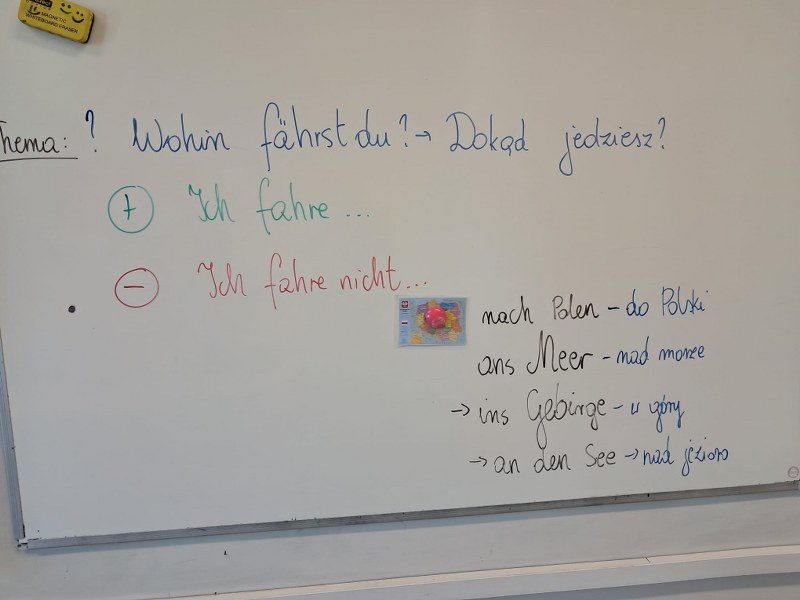 MAGNETIC
WHITEBOARD ERASER
Thema: ? Wohin fährst du? → Dokąd jedziesz?
+ Ich fahre ...
− Ich fahre nicht...
nach Polen – do Polski
ans Meer – nad morze
→ ins Gebirge – w góry
→ an den See → nad jezioro